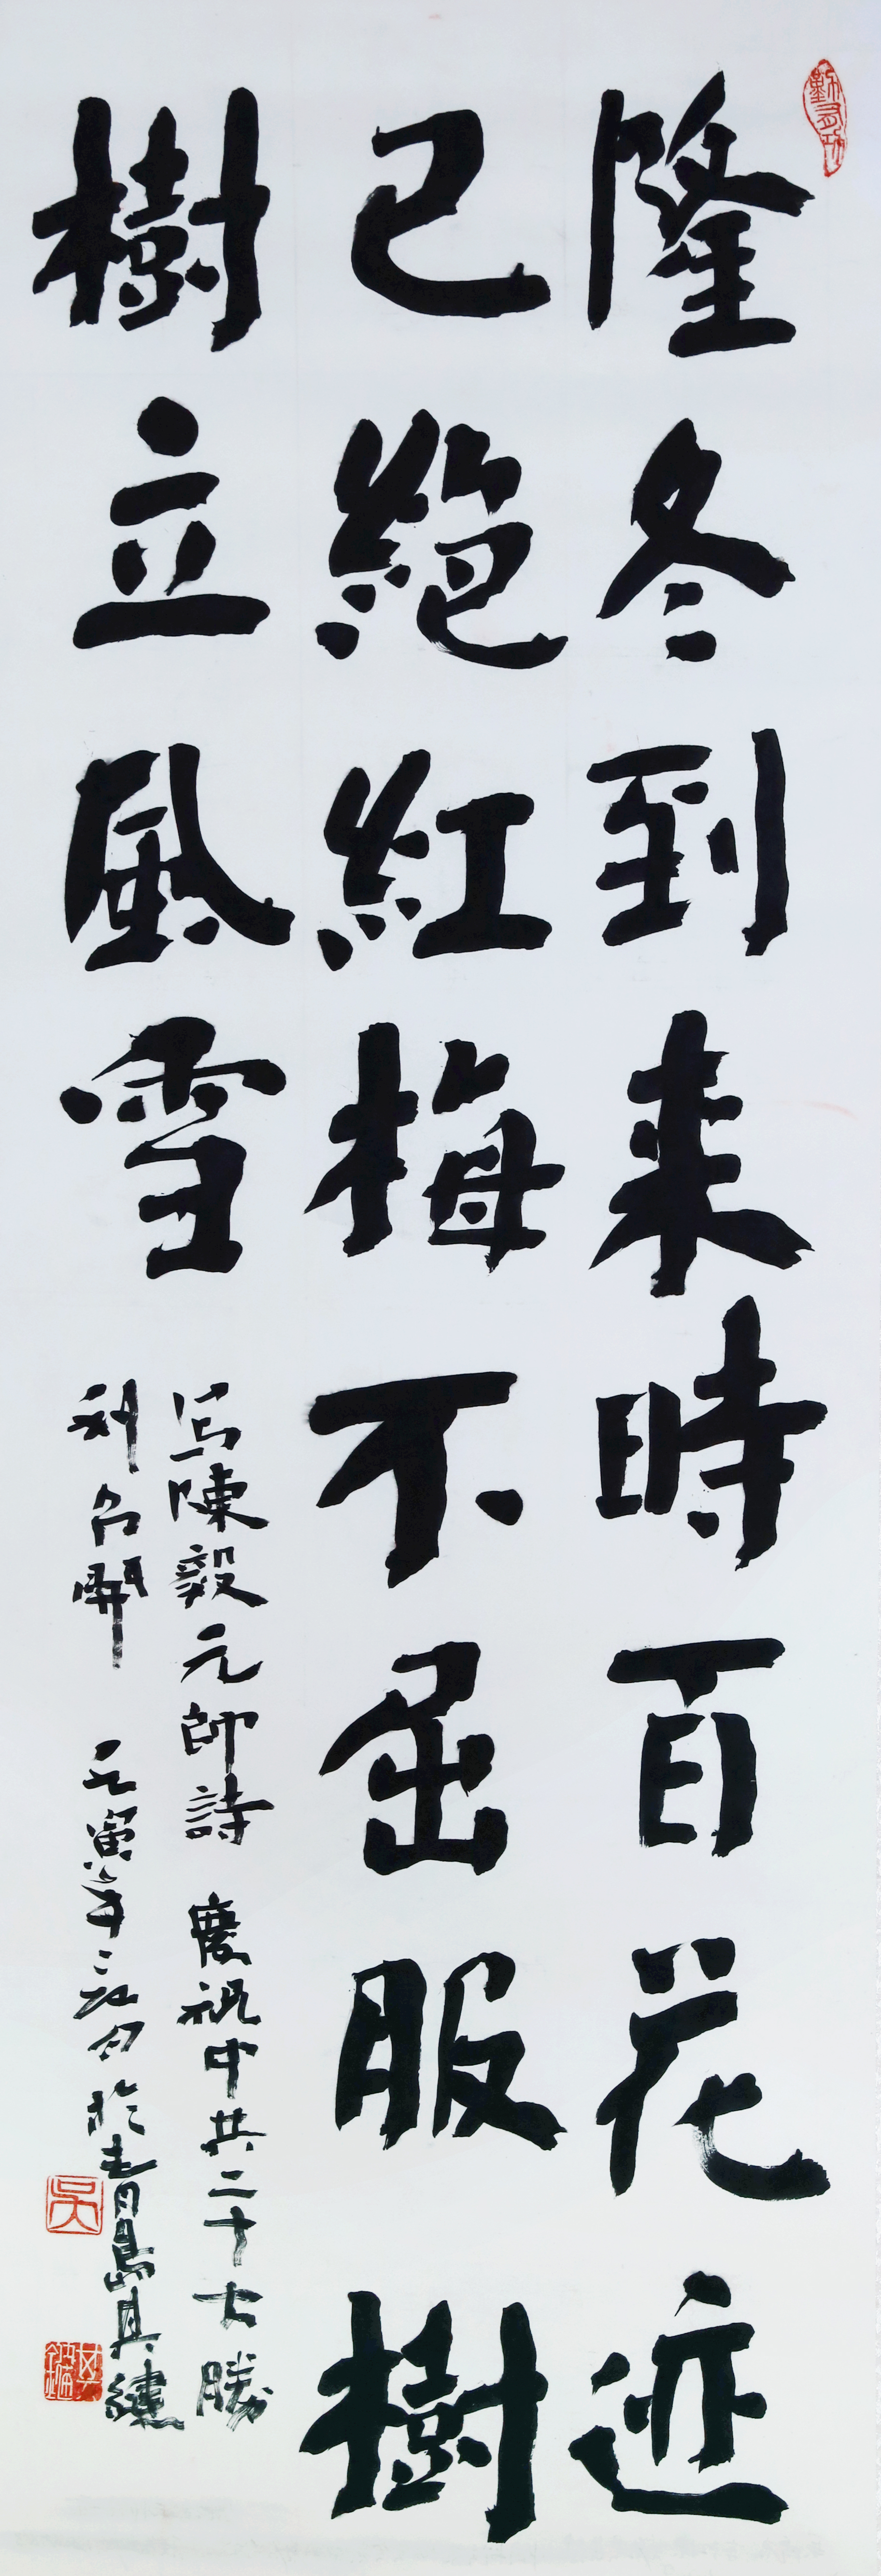 隆冬到来時百花迹
已絶紅梅不屈服樹
樹立風雪
写陳毅元帥詩 慶祝中共二十大勝
利召開 壬寅年 於青島
吳